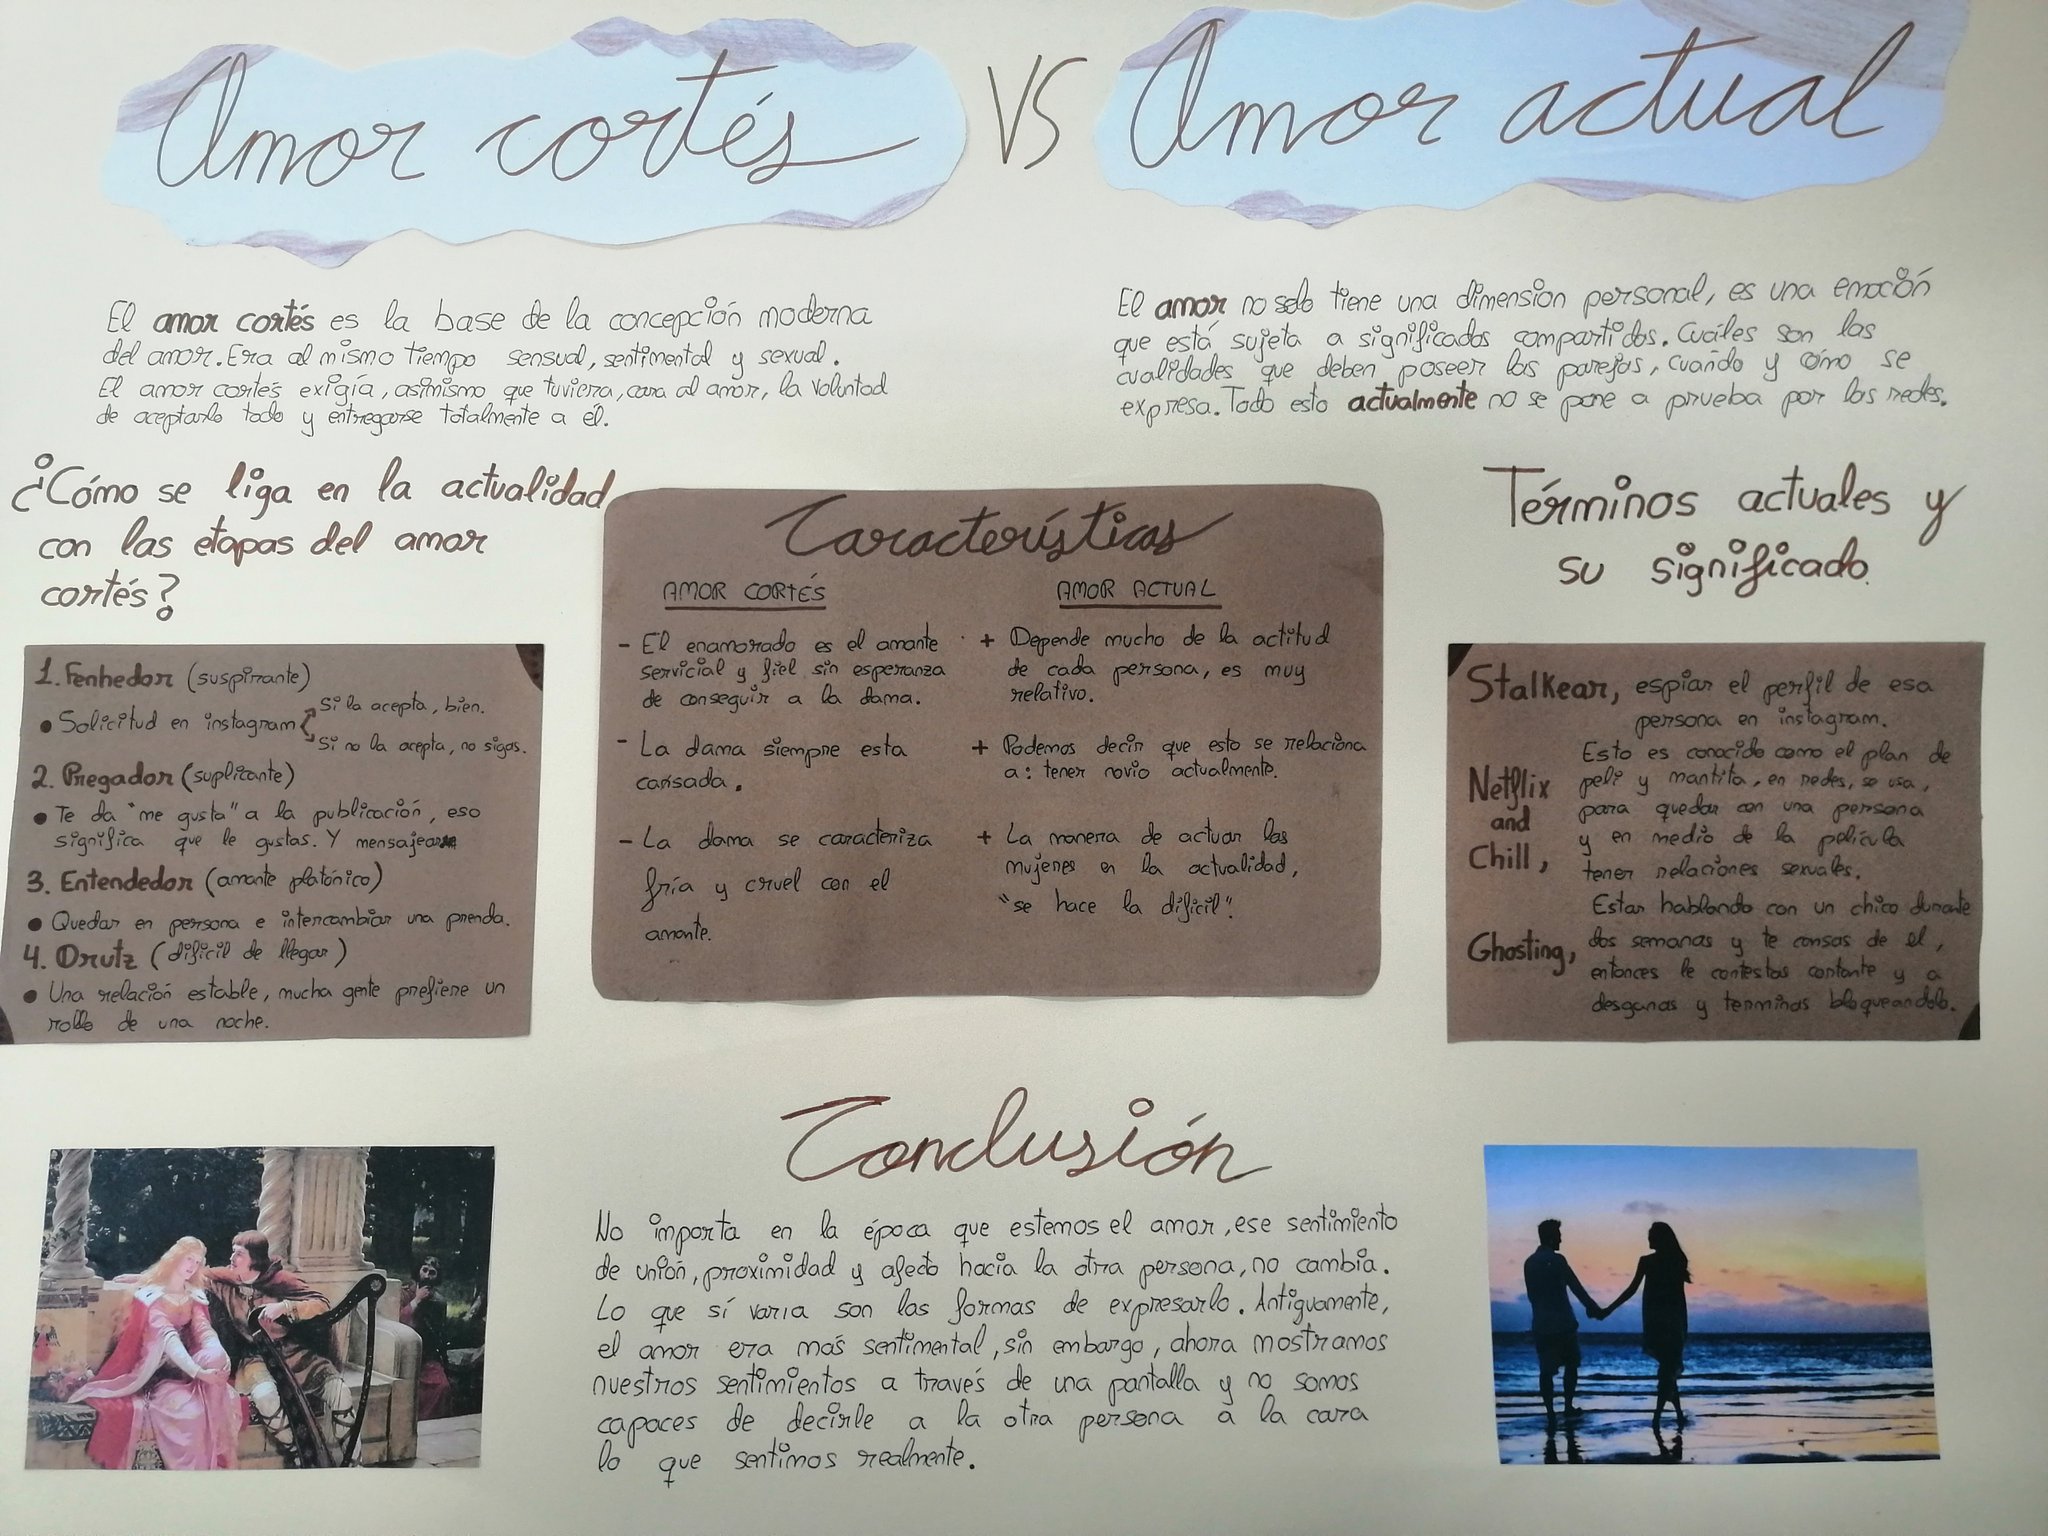 Amor cortés VS Amor actual
El amor cortés es la base de la concepción moderna
del amor. Era al mismo tiempo sensual, sentimental y sexual.
El amor cortés exigía, asimismo que tuviera, cara al amor, la voluntad
de aceptarlo todo y entregarse totalmente a él.
El amor no solo tiene una dimension personal, es una emoción
que está sujeta a significados compartidos. Cuáles son las
cualidades que deben poseer las parejas, cuándo y cómo se
expresa. Todo esto actualmente no se pone a prueba por las redes.
¿Cómo se liga en la actualidad
con las etapas del amor
cortés?
1. Fenhedor (suspirante)
• Solicitud en instagram
Si la acepta, bien.
Si no la acepta, no sigas.
2. Pregador (suplicante)
• Te da "me gusta" a la publicación, eso
significa que le gustas. Y mensajear
3. Entendedor (amante platónico)
• Quedar en persona e intercambiar una prenda.
4. Drutz (difícil de llegar)
• Una relación estable, mucha gente prefiere un
rollo de una noche.
Características
AMOR CORTÉS
- El enamorado es el amante
servicial y fiel sin esperanza
de conseguir a la dama.
- La dama siempre esta
casada.
- La dama se caracteriza
fría y cruel con el
amante.
AMOR ACTUAL
+ Depende mucho de la actitud
de cada persona, es muy
relativo.
+ Podemos decir que esto se relaciona
a: tener novio actualmente.
+ La manera de actuar las
mujeres en la actualidad,
"se hace la difícil".
Términos actuales y
su significado.
Stalkear, espiar el perfil de esa
persona en instagram.
Netflix
and
Chill,
Esto es conocido como el plan de
peli y mantita, en redes, se usa,
para quedar con una persona
y en medio de la película
tener relaciones sexuales.
Ghosting,
Estar hablando con un chico durante
dos semanas y te cansas de el,
entonces le contestas cortante y a
desganas y terminas bloqueandolo.
Conclusión
No importa en la época que estemos el amor, ese sentimiento
de unión, proximidad y afecto hacia la otra persona, no cambia.
Lo que sí varia son las formas de expresarlo. Antiguamente,
el amor era más sentimental, sin embargo, ahora mostramos
nuestros sentimientos a través de una pantalla y no somos
capaces de decirle a la otra persona a la cara
lo que sentimos realmente.